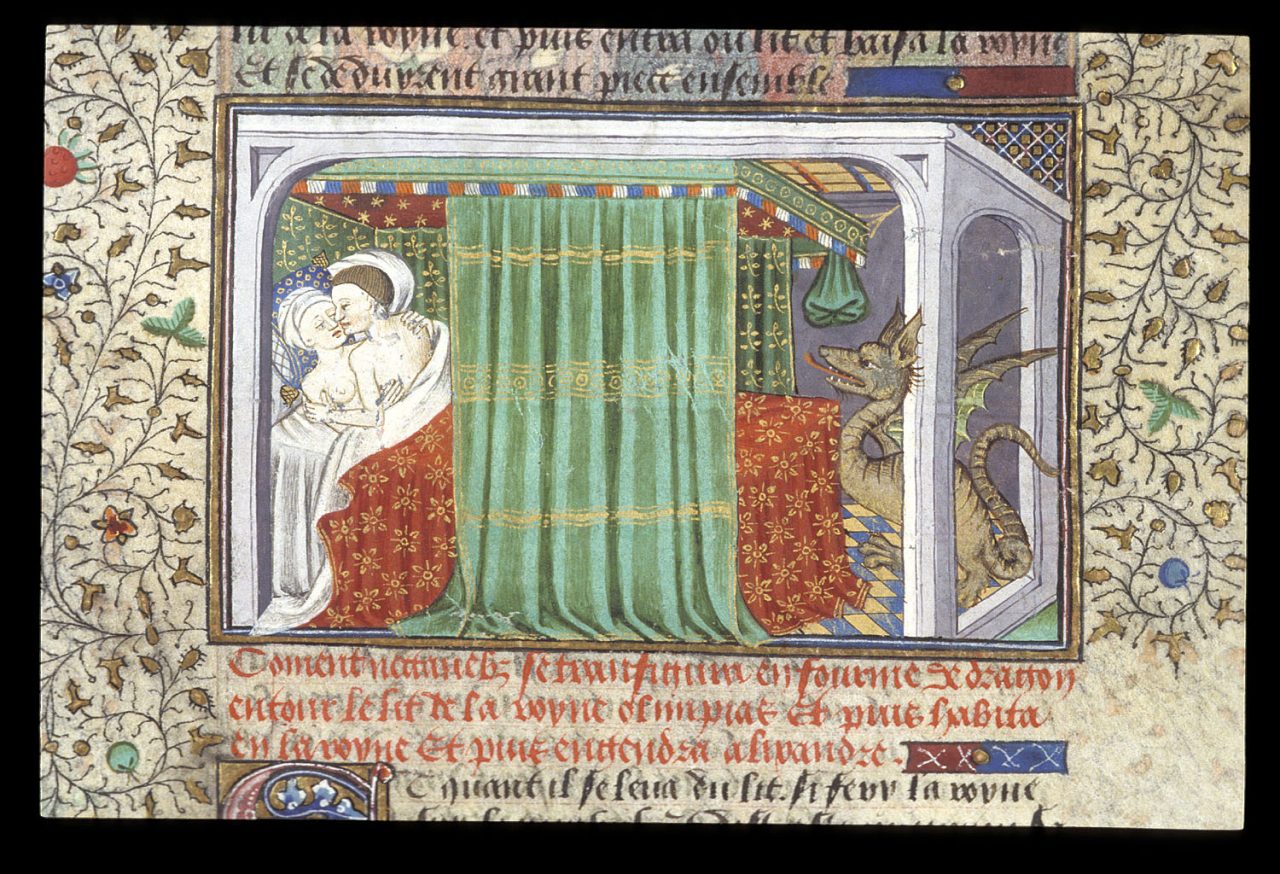 lit de la royne. et puis entra ou lit et baisa la royne
Et se deduyrent grant piece ensemble
Coment nectaneb9 se transfigura en fourme de dragon
entour le lit de la royne olimpias Et puis habita
en la royne Et puis engendra alixandre.
Et quant il se leva du lit. si fery la royne